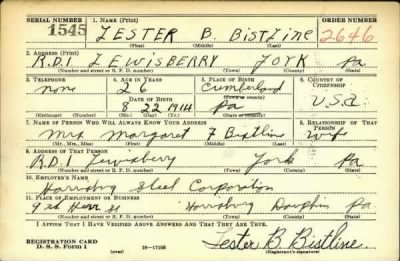 SERIAL NUMBER 1. NAME (Print) ORDER NUMBER
1545 LESTER B. BISTLINE 2646
(First) (Middle) (Last)
2. ADDRESS (Print)
R.D.1 LEWISBERRY YORK Pa
(Number and street or R. F. D. number) (Town) (County) (State)
3. TELEPHONE 4. AGE IN YEARS 5. PLACE OF BIRTH 6. COUNTRY OF CITIZENSHIP
none 26 Cumberland
DATE OF BIRTH
8 22 1914 Pa U.S.A.
(Exchange) (Number) (Mo.) (Day) (Yr.) (State or country)
7. NAME OF PERSON WHO WILL ALWAYS KNOW YOUR ADDRESS 8. RELATIONSHIP OF THAT PERSON
Mrs Margaret F Bistline wife
(Mr., Mrs., Miss) (First) (Middle) (Last)
9. ADDRESS OF THAT PERSON
R.D.1 Lewisberry York Pa
(Number and street or R. F. D. number) (Town) (County) (State)
10. EMPLOYER'S NAME
Harrisburg Steel Corporation
11. PLACE OF EMPLOYMENT OR BUSINESS
Herr St Harrisburg Dauphin Pa.
(Number and street or R. F. D. number) (Town) (County) (State)
I AFFIRM THAT I HAVE VERIFIED ABOVE ANSWERS AND THAT THEY ARE TRUE.
REGISTRATION CARD
D. S. S. Form 1 (over) 16—17105 Lester B. Bistline
(Registrant's signature)